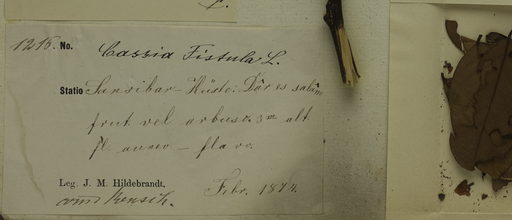 1216. No. Cassia Fistula L.
Statio Sansibar-Küste: Dâr es salâm
frut vel arbusc. 3m alt
fl. – flavo.
Leg. J. M. Hildebrandt.
Febr. 1874.